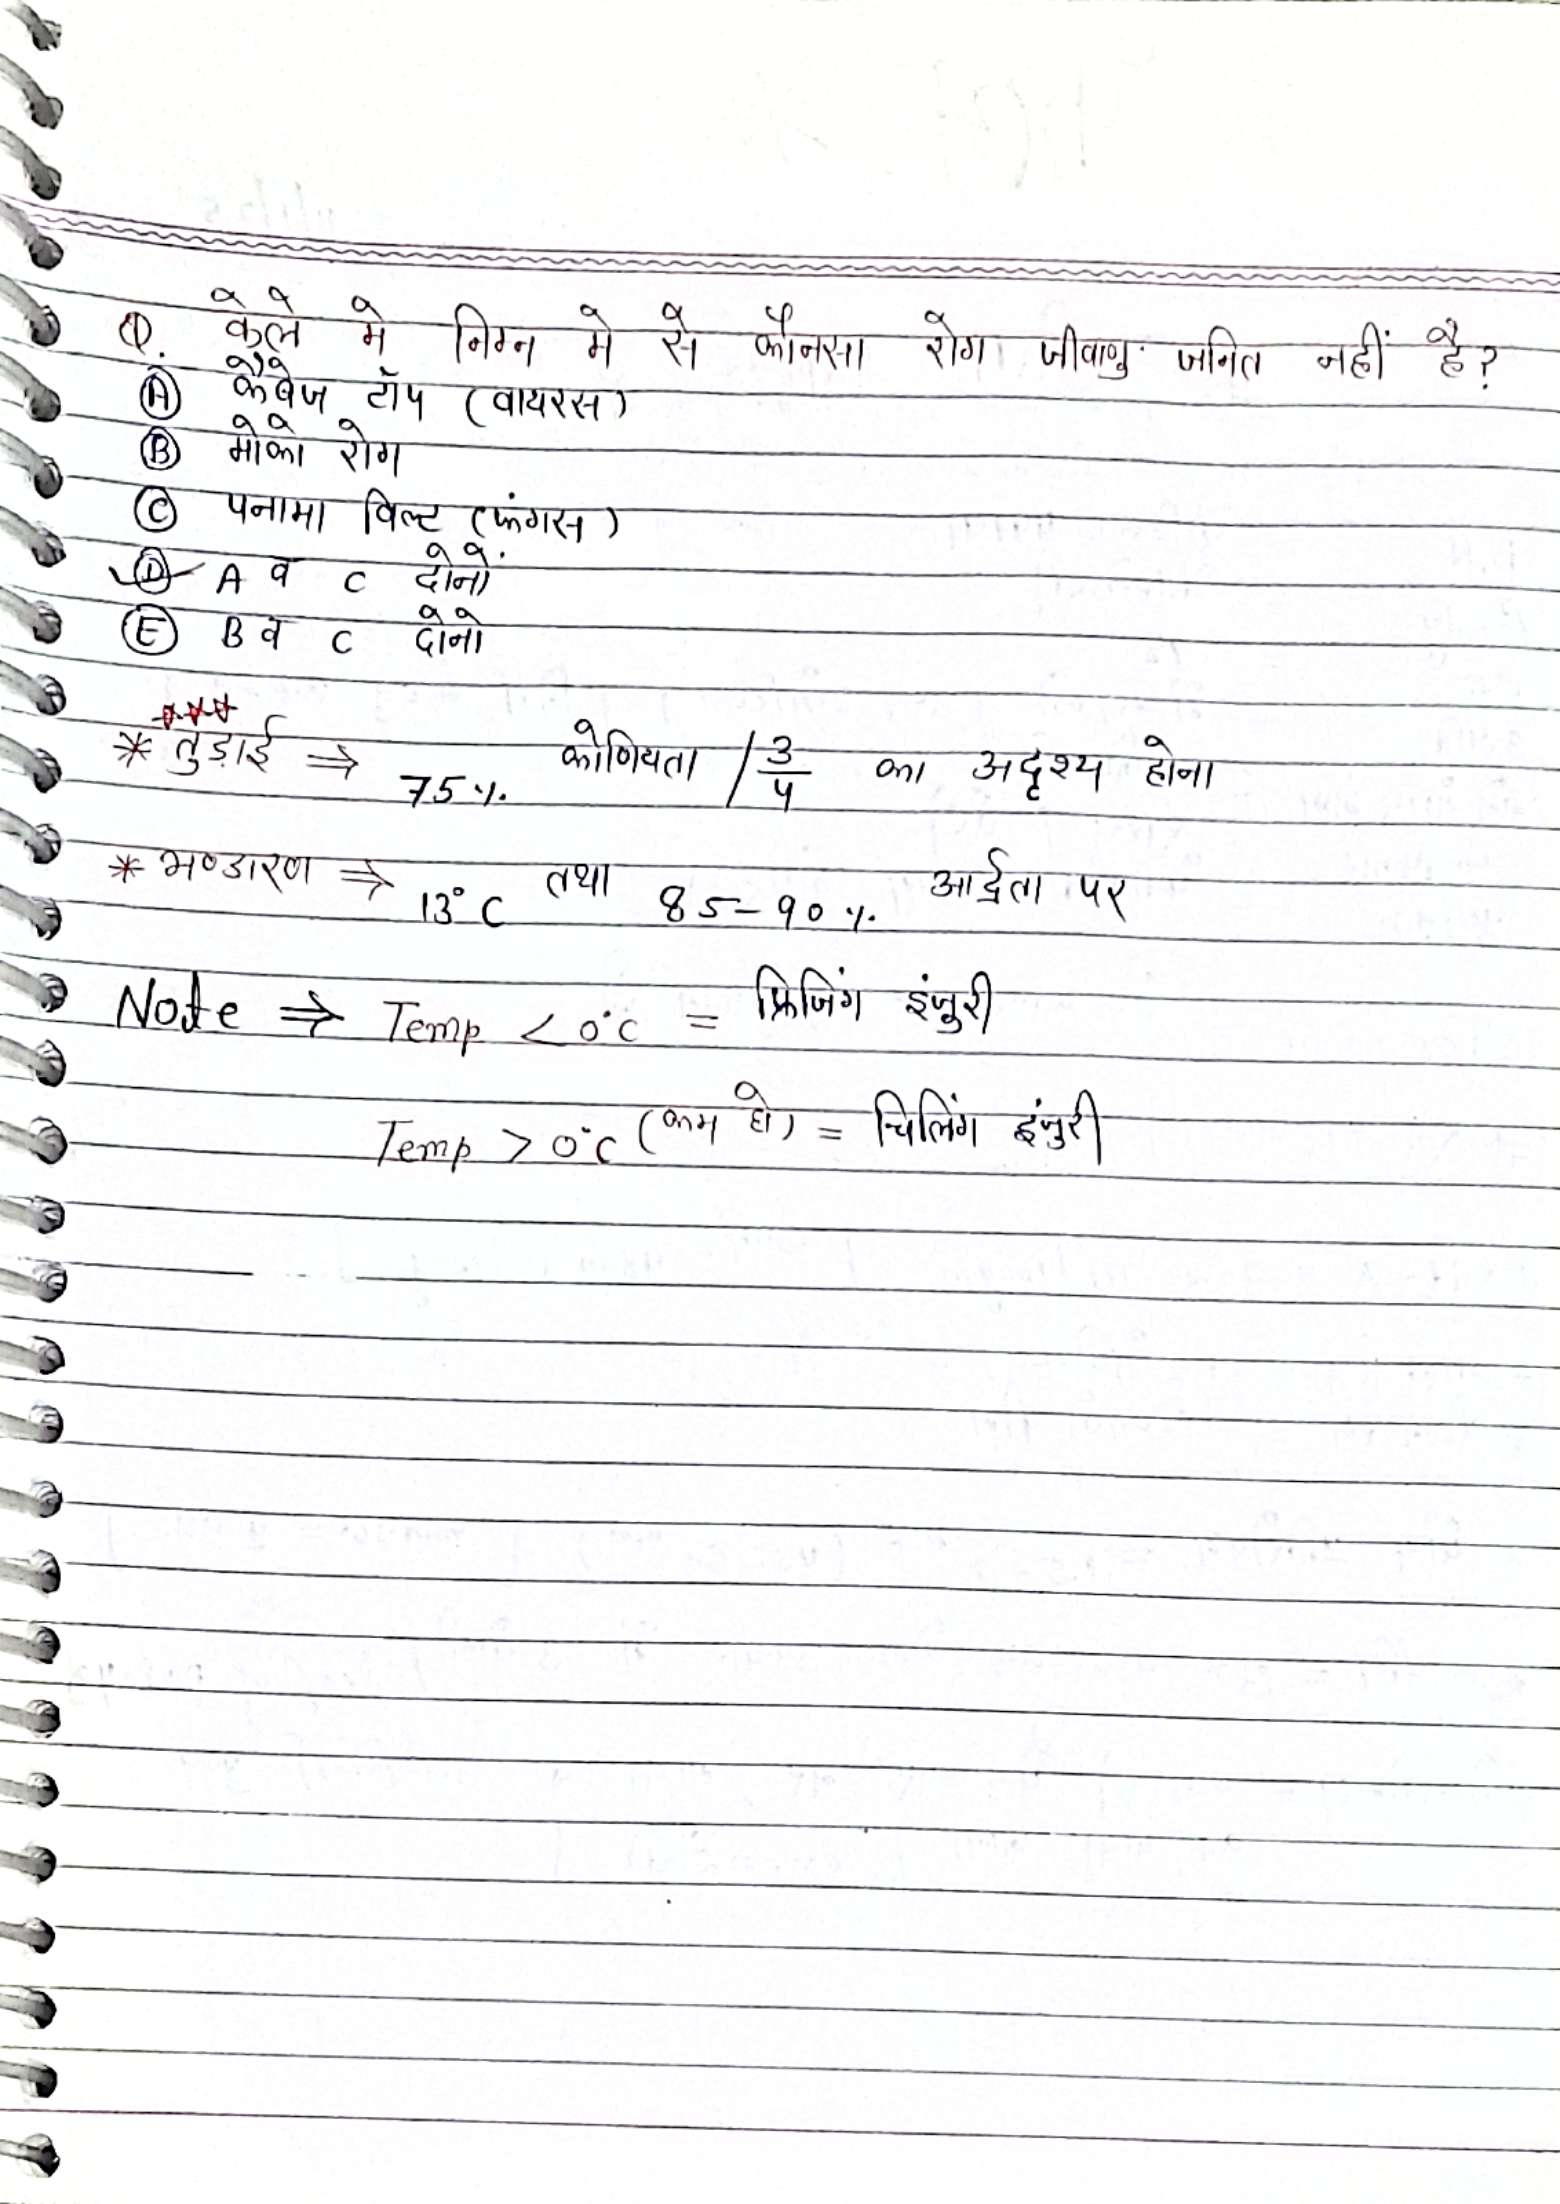 Q. केले मे निम्न मे से कौनसा रोग जीवाणु जनित नहीं है?
Ⓐ केबेज टॉप (वायरस)
Ⓑ मोको रोग
Ⓒ पनामा विल्ट (फंगस)
Ⓓ A व C दोनों
Ⓔ B व C दोनो
* तुड़ाई ⇒ 75% कोणियता / 3/4 का अदृश्य होना
* भण्डारण ⇒ 13°C तथा 85-90% आर्द्रता पर
Note ⇒ Temp < 0°C = फ्रिजिंग इंजुरी
Temp > 0°C (कम हो) = चिलिंग इंजुरी